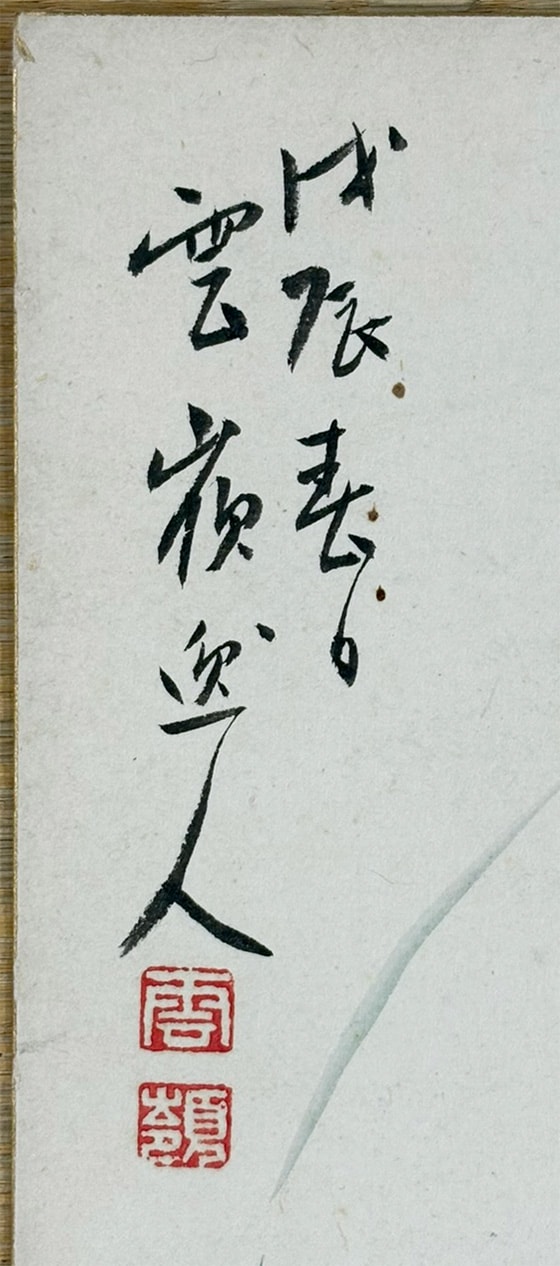 戊辰春日
雲嶺逸人
雲
嶺